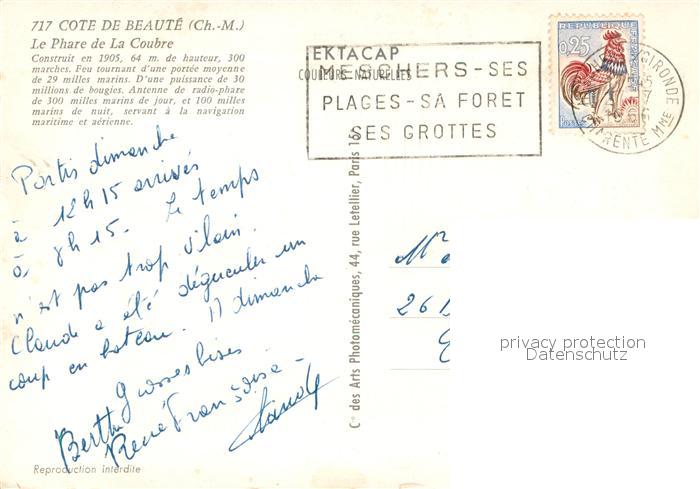 717 COTE DE BEAUTÉ (Ch.-M.)
Le Phare de La Coubre
Construit en 1905, 64 m. de hauteur, 300
marches. Feu tournant d'une portée moyenne
de 29 milles marins. D'une puissance de 30
millions de bougies. Antenne de radio-phare
de 300 milles marins de jour, et 100 milles
marins de nuit, servant à la navigation
maritime et aérienne.
EKTACAP
COULEURS NATURELLES
MESCHERS-SES
PLAGES-SA FORET
SES GROTTES
0,25
GIRONDE
CHARENTE MME
Partis dimanche
à 12h15 arrivés
à 8h15. Le temps
n'est pas trop vilain.
Claude a été dégueuler un
coup en bateau. A dimanche
Grosses bises
Berthe
René Françoise
Claude
Cie des Arts Photomécaniques, 44, rue Letellier, Paris 15
Mr
26
privacy protection
Datenschutz
Reproduction interdite